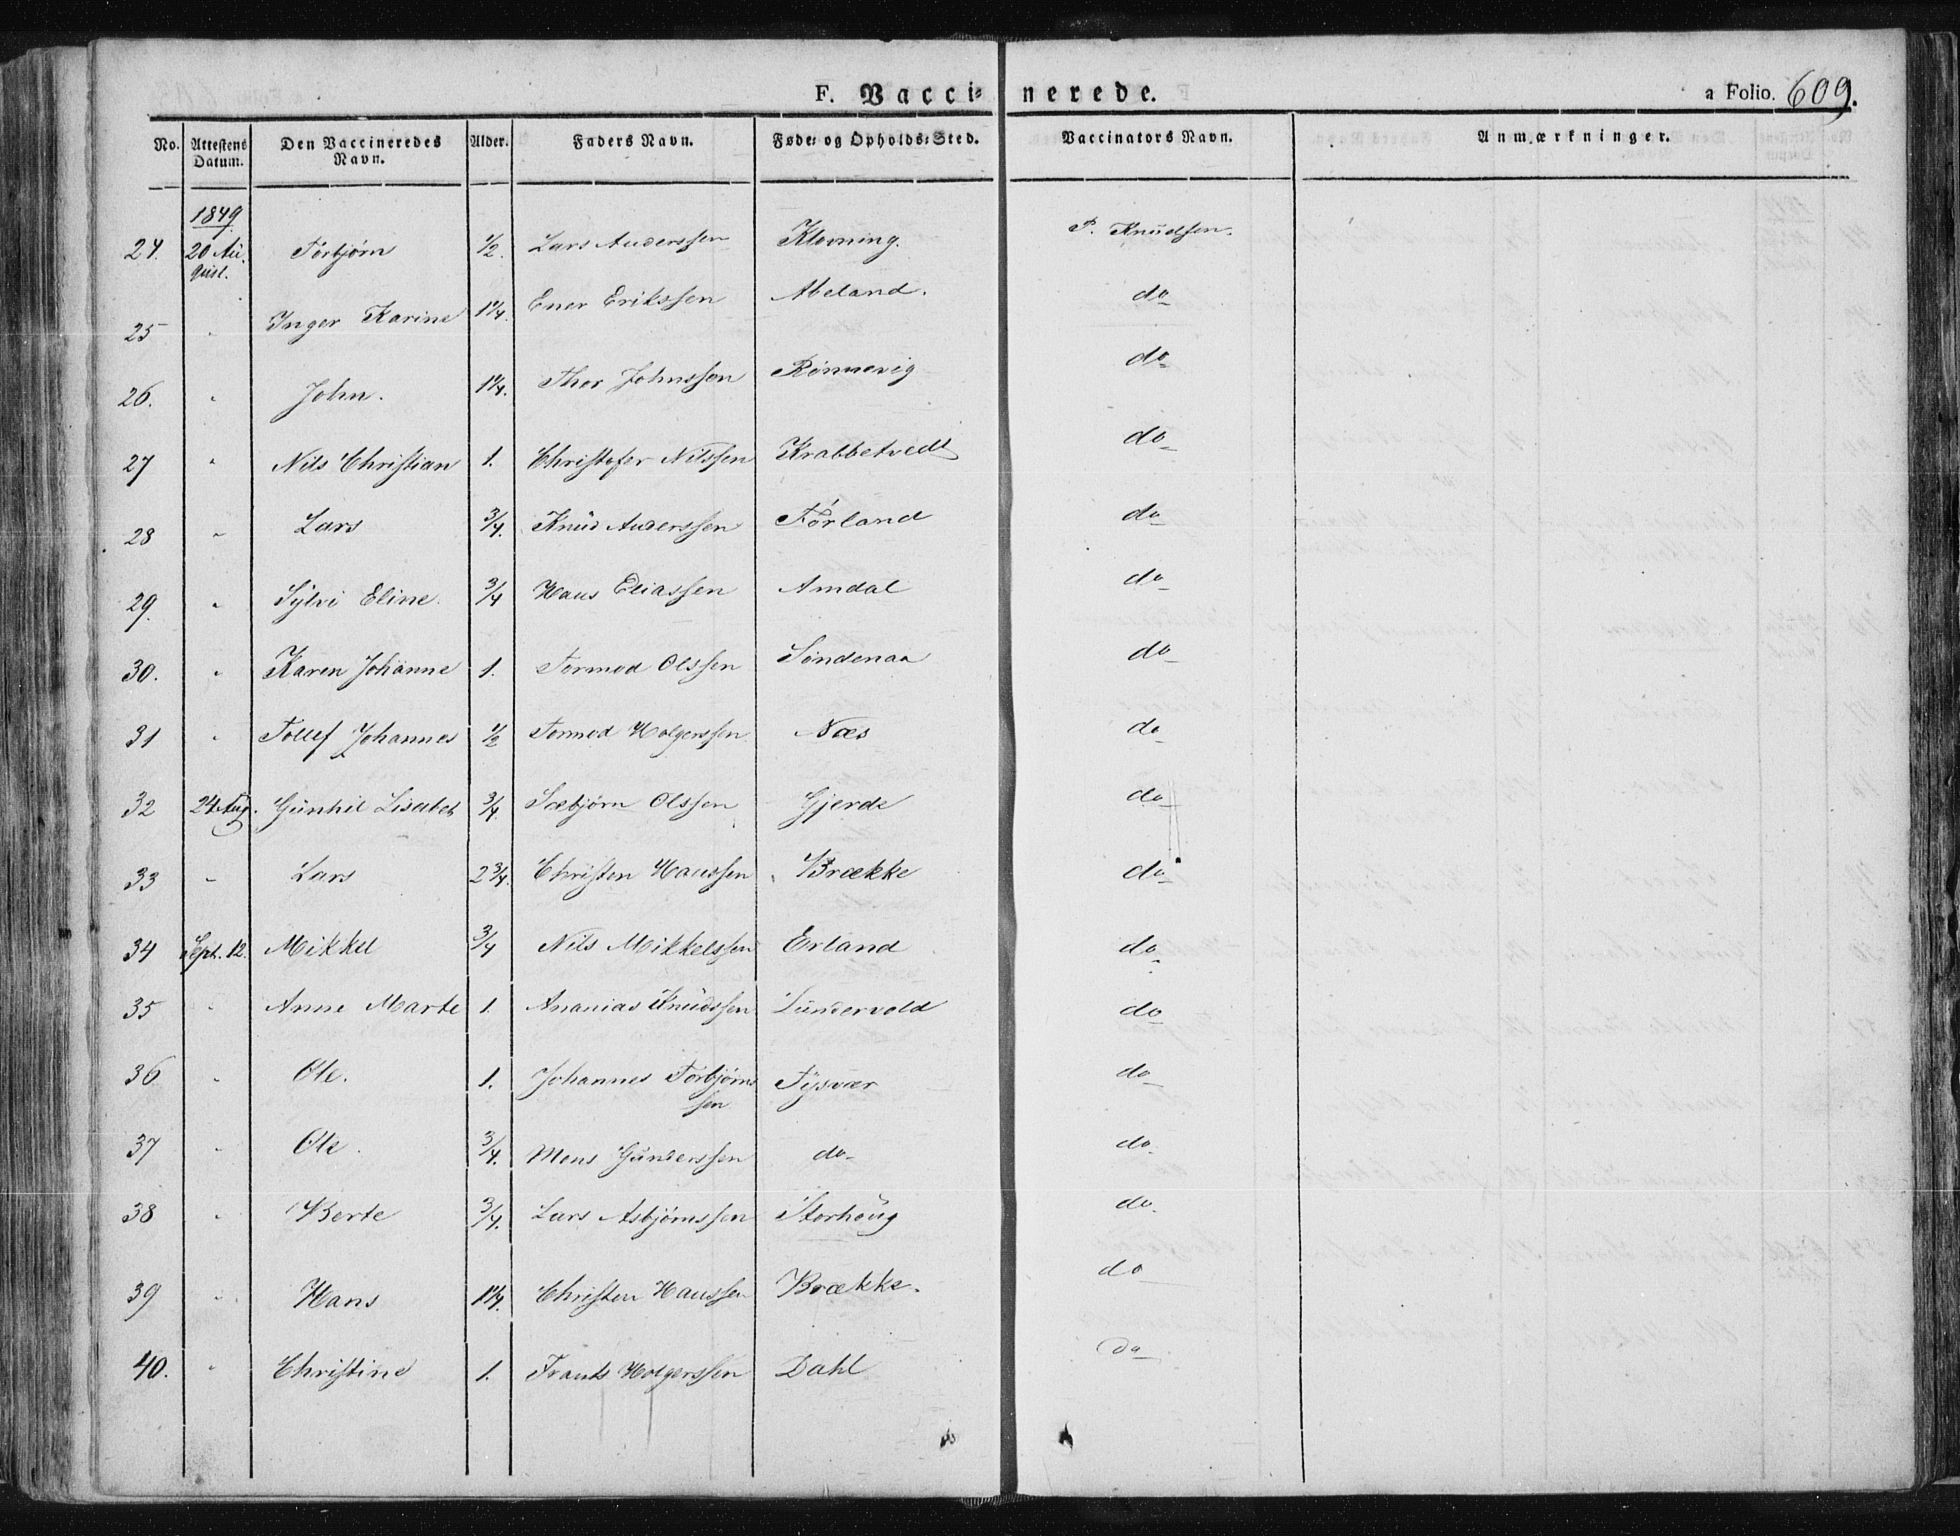 F. Vacci= nerede. a Folio. 609.
No. Attestens Datum. Den Vaccineredes Navn. Alder. Faders Navn. Føde= og Opholds=Sted. Vaccinators Navn. Anmærkninger.
1849
24. 20 Au=gust. Torbjørn 1/2. Lars Anderssen Klovning. P. Knudsen.
25 " Inger Karine 1 1/4. Ener Erikssen Abeland. do
26. " John. 1 1/4. Thor Johnssen Rønnevig do
27 " Nils Christian 1. Christofer Nilssen Krabbetvedt do
28 " Lars 3/4. Knud Anderssen Førland do
29. " Sylvi Eline. 3/4 Hans Eliassen Amdal do
30. " Karen Johanne 1. Tormod Olssen Søndenaa do
31 " Tollef Johannes 1/2 Tormod Holgerssen Næs do
32 24 Aug. Gunhil Lisabet 3/4. Sæbjørn Olssen Gjerde do
33 " Lars 2 3/4. Christen Hanssen Brække do
34 Sept. 12. Mikkel 3/4 Nils Mikkelssen Erland do
35 " Anne Marte 1. Ananias Knudssen Lundervold do
36 " Ole. 1. Johannes Torbjørns
sen Tysvær do
37 " Ole. 3/4. Mons Gunderssen do do
38 " Berte 3/4. Lars Asbjørnssen Storhoug do.
39 " Hans 1 1/4. Christen Hanssen Brække. do
40. " Christine 1. Frants Holgerssen Dahl do